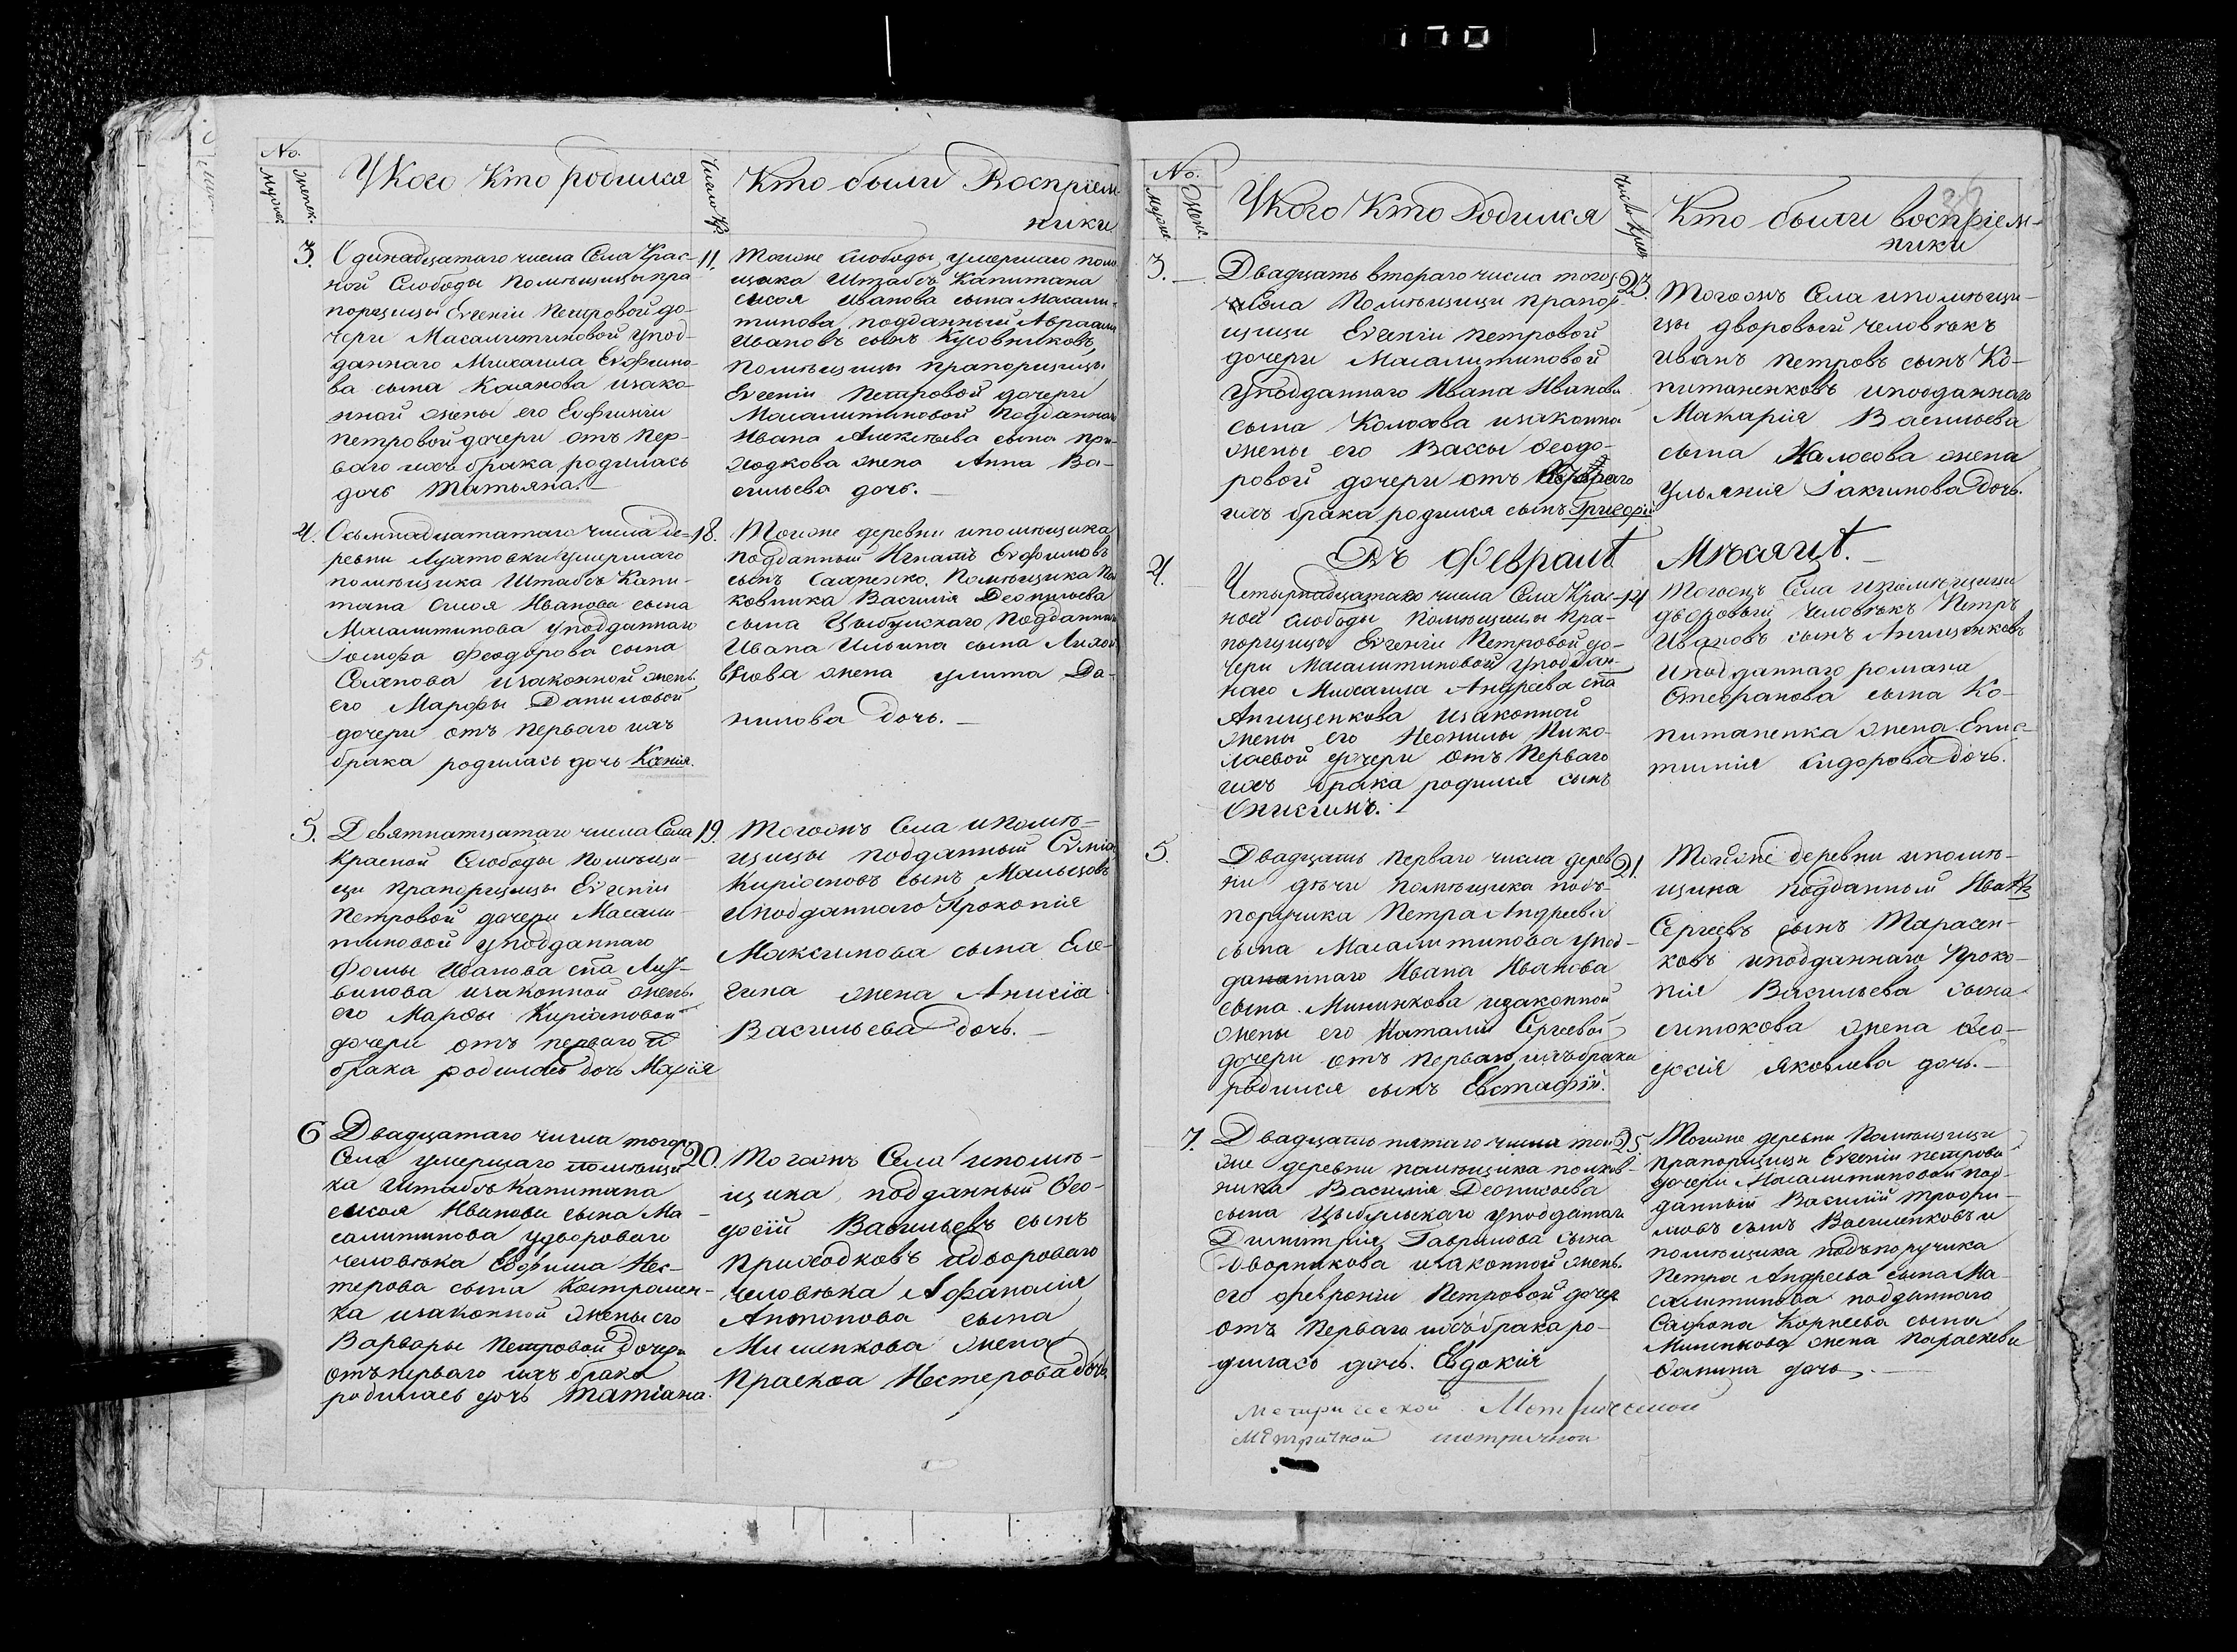 No.
Мужск.
Женск.
У Кого Кто родился
Число Кр.
Кто были Воспріем-
ники
3.
Одинадцатаго числа Села Крас-
ной Слободы помѣщицы пра-
порщицы Евгеніи Петровой до-
чери Масалитиновой у под-
даннаго Михаила Евфимо-
ва сына Калянова изако-
нной жены его Евфиміи
петровой дочери отъ пер-
ваго ихъ брака родилась
дочь Татьяна. —
11.
Тоиже слободы умершаго помѣ
щика Штабсъ Капитана
Сысоя Иванова сына Масали-
тинова подданный Авраамъ
Ивановъ сынъ Кусовниковъ,
помѣщицы прапорщицы
Евгеніи Петровой дочери
Масалитиновой подданнаго
Ивана Алексѣева сына При-
ходкова жена Анна Ва-
сильева дочь. —
4.
Осьмнадцататаго числа де-
ревни Луятовки умершаго
помѣщика Штабсъ Капи-
тана Сысоя Иванова сына
Масалитинова у подданнаго
Іосифа Феодорова сына
Солянова изаконной жены
его Марфы Даниловой
дочери отъ перваго ихъ
брака родилась дочь Ксенія.
18.
Тоиже деревни ипомѣщика
подданный Игнатъ Евфимовъ
сынъ Саяненко, помѣщика пол
ковника Василія Леонтьева
сына Цыбульскаго подданнаго
Ивана Ильина сына Лихо
внова жена улита Да-
нилова дочь. —
5.
Девятнатцатаго числа Села
Красной Слободы помѣщи-
цы прапорщицы Евгеніи
Петровой дочери Масали-
тиновой у подданнаго
Фомы Иванова сна Лит-
винова изаконной жены
его Марфы Киріановой
дочери отъ перваго ихъ
брака родилась дочь Марія
19.
Тогожъ Села ипомѣ-
щицы подданный
Киріановъ сынъ Мальцовъ
иподданнаго Прокопія
Максимова сына Еле-
гина жена Анисіа
Васильева дочь. —
6
Двадцатаго числа тогожъ
Села умершаго помѣщи
ка Штабсъ Капитана
Сысоя Иванова сына Ма-
салитинова у двороваго
человѣка Евфима Нес-
терова сына Костромен-
ка изаконной жены его
Варвары Петровой дочери
отъ перваго ихъ брака
родилась дочь Татіана.
20.
Тогожъ Села ипомѣ-
щика, подданный Фео-
досій Васильевъ сынъ
Приходковъ идвороваго
человѣка Афанасія
Антонова сына
Мишенкова жена
Праскоа Нестерова дочь
No.
Мужс.
Женс.
У Кого Кто Родился
Число Крещ
Кто были воспріем-
ники
3. —
Двадцать втораго числа тогож
Села Помѣщицы прапор
щицы Евгеніи петровой
дочери Масалитиновой
у подданнаго Ивана Иванова
сына Колосова изаконна
жены его Вассы Феодо-
ровой дочери отъ втораго
ихъ брака родился сынъ Григорій
23.
Тогожъ Села ипомѣщи-
цы дворовый человѣкъ
Иванъ Петровъ сынъ Ко-
питаненковъ иподданнаго
Макарія Васильева
сына Калосова жена
Ульянія Іакимова дочь.
Въ Февралѣ Мѣсяцѣ. —
4.
Четырнадцатаго числа Села Крас-
ной слободы помѣщицы Пра-
порщицы Евгеніи Петровой до-
чери Масалитиновой у поддан-
наго Михаила Андреева сна
Анищенкова изаконной
жены его Неонилы Нико-
лаевой дочери отъ Перваго
ихъ брака родился сынъ
Онисимъ.
14
Тогожъ Села ипомѣщицы
дворовый человѣкъ Петръ
Ивановъ сынъ Анищенковъ
иподданнаго романа
Стефанова сына Ко-
питаненка жена Епис-
тимія Сидорова дочь.
5.
Двадцать перваго числа дерев
ни дѣчи помѣщика подъ-
поручика Петра Андреева
сына Масалитинова у под-
даннаго Ивана Иванова
сына Мининкова изаконной
жены его Наталіи Сергеевой
дочери отъ перваго ихъ брака
родился сынъ Евстафій.
21.
Тойже деревни ипомѣ-
щика подданный Иванъ
Сергеевъ сынъ Тарасен-
ковъ иподданнаго Проко-
пія Васильева сына
житокова жена Фео-
досія Яковлева дочь. —
7.
Двадцать пятаго числа той
же деревни помѣщика полков-
ника Василія Леонтьева
сына Цыбульскаго у поддатаго
Димитрія Гаврилова сына
Дворникова изаконной жены
его февроніи Петровой дочери
отъ перваго ихъ брака ро-
дилась дочь. Евдокія
25.
Тоиже деревни Помѣщицы
прапорщицы Евгеніи петрово
дочери Масалитиновой под-
данный Василій трофи-
мовъ сынъ Василенковъ и
помѣщика подъпоручика
Петра Андреева сына Ма-
салитинова подданнаго
Сафона Корнеева сына
Мишенкова жена параскева
Фомина дочь. —
Метрической Метрической
Метричной метричной